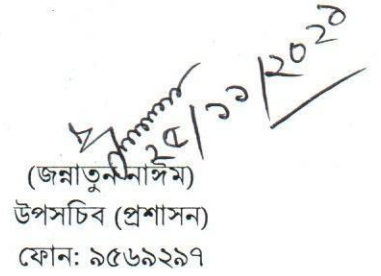 ২৫/১১/২০২১
(জন্নাতুন নাঈম)
উপসচিব (প্রশাসন)
ফোন: ৯৫৬৯২৯৭